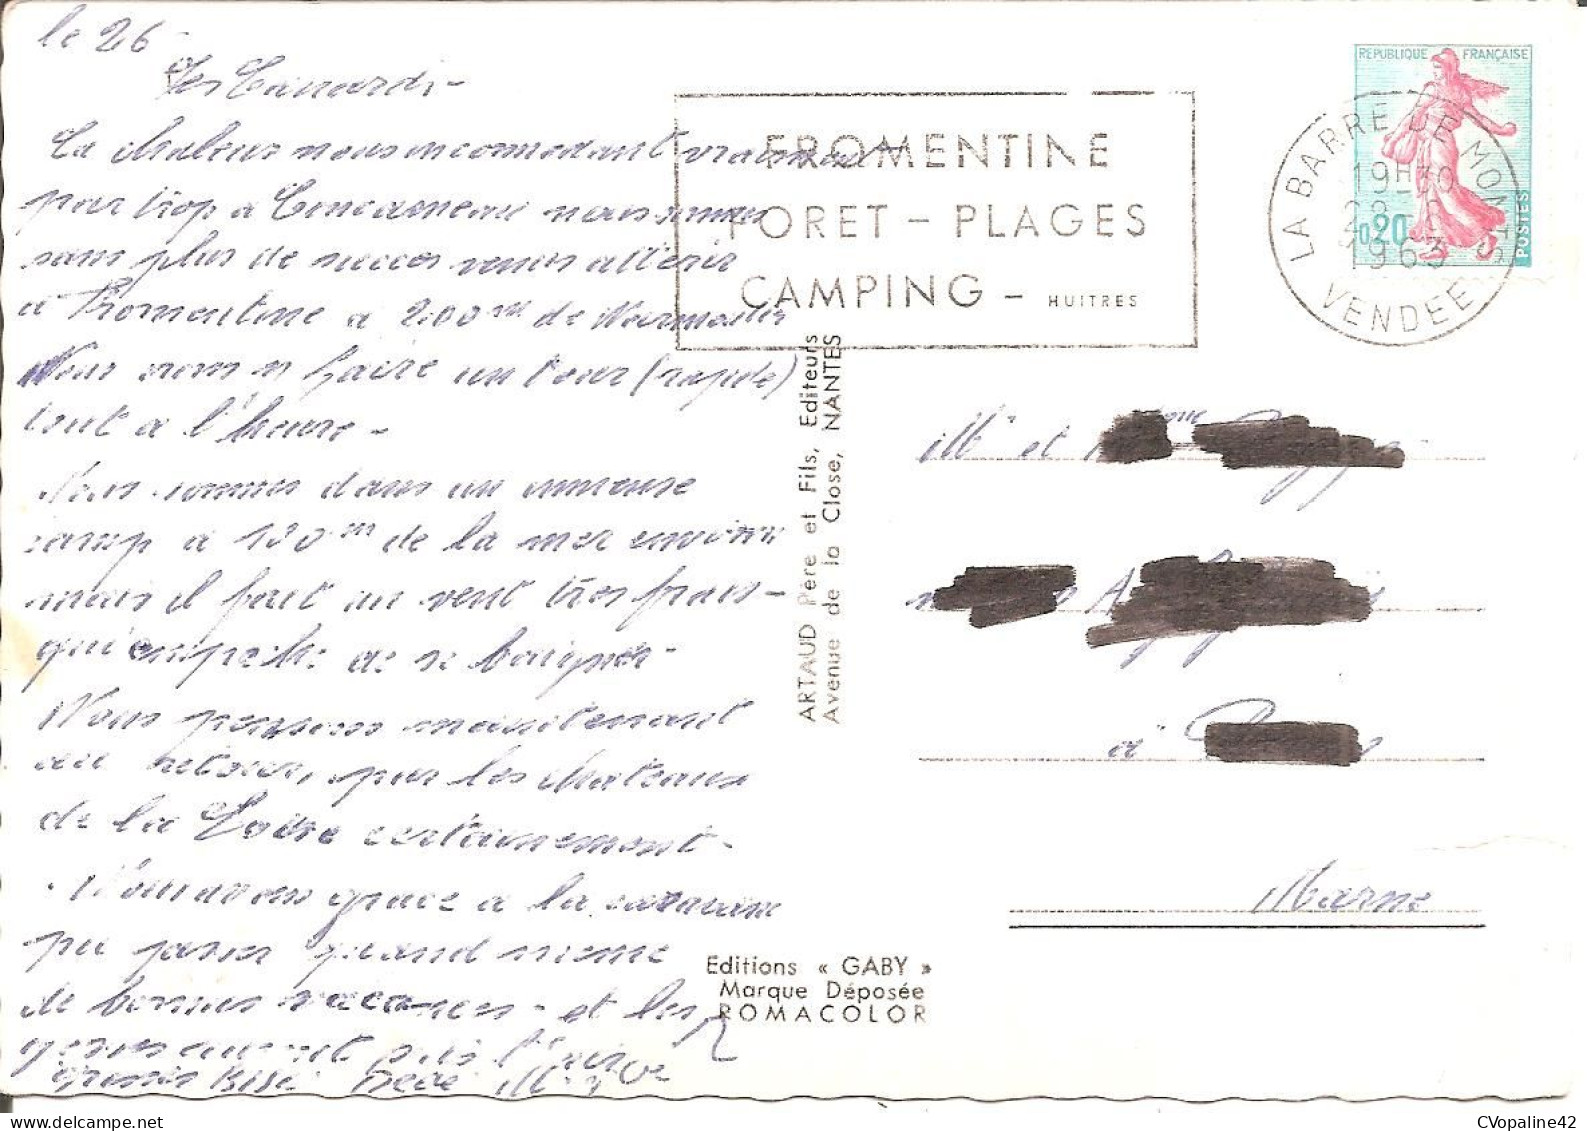 le 26
La chaleur nous incommodant vraiment
par trop à Concarneau nous sommes
sans plus de succès venus atterir
à Fromentine à 200 m de Noirmoutier
Nous irons y faire un tour (rapide)
tout à l'heure -
Nous sommes dans un immense
camp à 150 m de la mer environ
mais il fait un vent très frais -
qui empeche de se baigner -
Nous pensons maintenant
au retour, par les chateaux
de la Loire certainement -
Nous avons grace à la caravane
pu passer quand meme
de bonnes vacances - et les
Grosses Bises Dédé
FROMENTINE
FORET - PLAGES
CAMPING - HUITRES
LA BARRE DE MONTS
19H30
1963
VENDEE
REPUBLIQUE FRANÇAISE
0,20
POSTES
ARTAUD Père et Fils, Editeurs
Avenue de la Close, NANTES
Mr et
à
Marne
Editions « GABY »
Marque Déposée
ROMACOLOR
CVopaline42